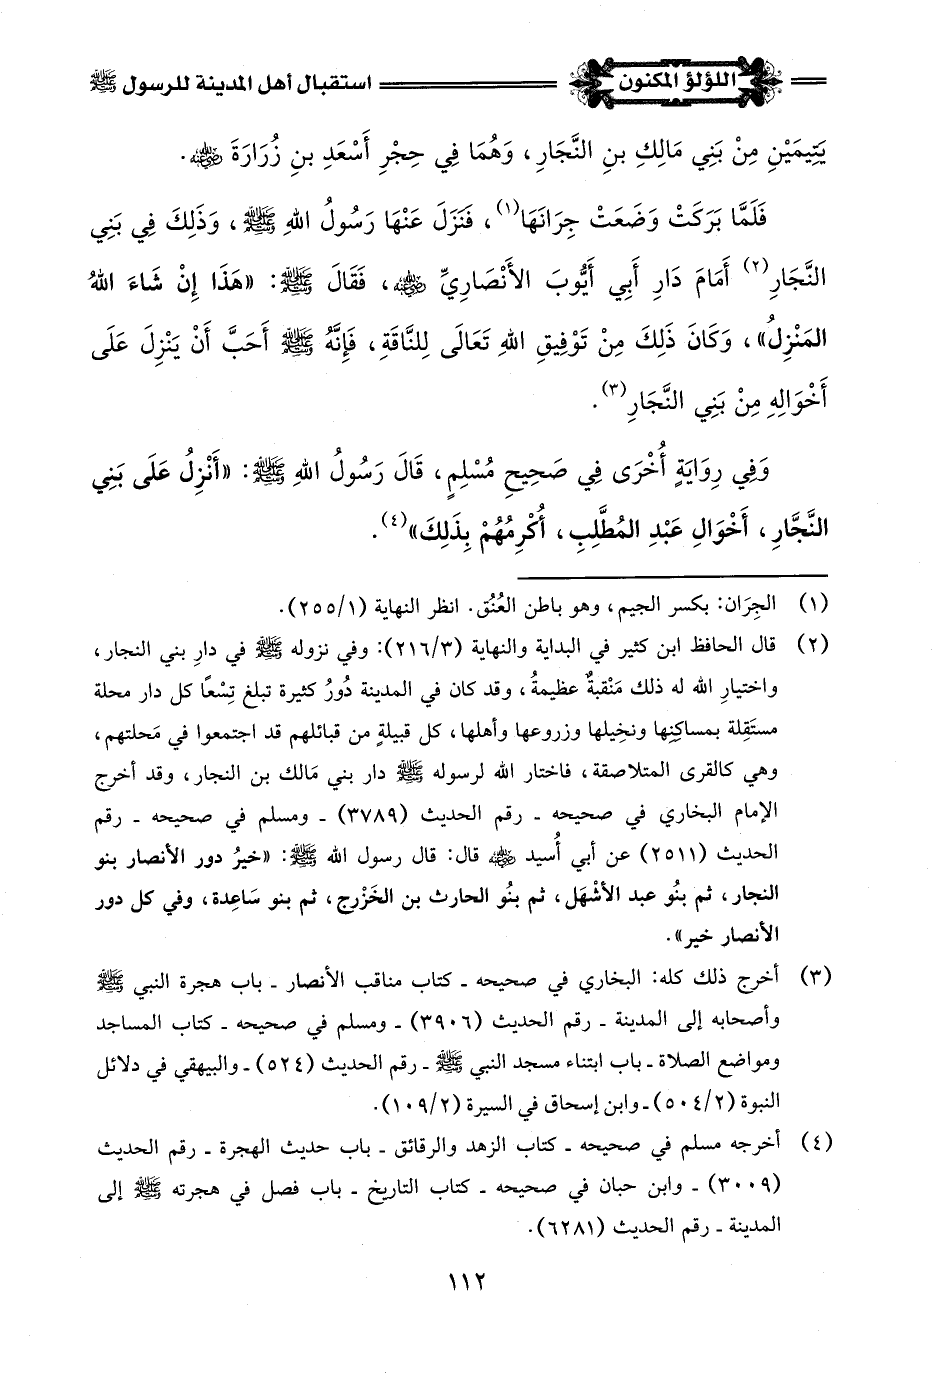 اللؤلؤ المكنون استقبال أهل المدينة للرسول ﷺ
يَتِيمَيْنِ مِنْ بَنِي مَالِكِ بنِ النَّجَارِ، وَهُمَا فِي حِجْرِ أَسْعَدِ بنِ زُرَارَةَ رضي الله عنه.
فَلَمَّا بَرَكَتْ وَضَعَتْ جِرَانَهَا(١)، فَنَزَلَ عَنْهَا رَسُولُ اللهِ ﷺ، وَذَلِكَ فِي بَنِي
النَّجَارِ(٢) أَمَامَ دَارِ أَبِي أَيُّوبَ الأَنْصَارِيِّ رضي الله عنه، فَقَالَ ﷺ: «هَذَا إِنْ شَاءَ اللهُ
المَنْزِلُ»، وَكَانَ ذَلِكَ مِنْ تَوْفِيقِ اللهِ تَعَالَى لِلنَّاقَةِ، فَإِنَّهُ ﷺ أَحَبَّ أَنْ يَنْزِلَ عَلَى
أَخْوَالِهِ مِنْ بَنِي النَّجَارِ(٣).
وَفِي رِوَايَةٍ أُخْرَى فِي صَحِيحِ مُسْلِمٍ، قَالَ رَسُولُ اللهِ ﷺ: «أَنْزِلُ عَلَى بَنِي
النَّجَّارِ، أَخْوَالِ عَبْدِ المُطَّلِبِ، أُكْرِمُهُمْ بِذَلِكَ»(٤).
(١) الجِرَان: بكسر الجيم، وهو باطن العُنُق. انظر النهاية (٢٥٥/١).
(٢) قال الحافظ ابن كثير في البداية والنهاية (٢١٦/٣): وفي نزوله ﷺ في دارِ بني النجار،
واختيارِ الله له ذلك مَنْقبةٌ عظيمةُ، وقد كان في المدينة دُورُ كثيرة تبلغ تِسْعًا كل دار محلة
مستَقِلة بمساكنِها ونخيلها وزروعها وأهلها، كل قبيلةٍ من قبائلهم قد اجتمعوا في مَحلتهم،
وهي كالقرى المتلاصقة، فاختار الله لرسوله ﷺ دار بني مَالك بن النجار، وقد أخرج
الإمام البخاري في صحيحه ـ رقم الحديث (٣٧٨٩) ـ ومسلم في صحيحه ـ رقم
الحديث (٢٥١١) عن أبي أُسيد رضي الله عنه قال: قال رسول الله ﷺ: «خيرُ دور الأنصار بنو
النجار، ثم بنُو عبد الأشْهَل، ثم بنُو الحارث بن الخَزْرج، ثم بنو سَاعِدة، وفي كل دور
الأنصار خير».
(٣) أخرج ذلك كله: البخاري في صحيحه ـ كتاب مناقب الأنصار ـ باب هجرة النبي ﷺ
وأصحابه إلى المدينة ـ رقم الحديث (٣٩٠٦) ـ ومسلم في صحيحه ـ كتاب المساجد
ومواضع الصلاة ـ باب ابتناء مسجد النبي ﷺ ـ رقم الحديث (٥٢٤) ـ والبيهقي في دلائل
النبوة (٥٠٤/٢) ـ وابن إسحاق في السيرة (١٠٩/٢).
(٤) أخرجه مسلم في صحيحه ـ كتاب الزهد والرقائق ـ باب حديث الهجرة ـ رقم الحديث
(٣٠٠٩) ـ وابن حبان في صحيحه ـ كتاب التاريخ ـ باب فصل في هجرته ﷺ إلى
المدينة ـ رقم الحديث (٦٢٨١).
١١٢